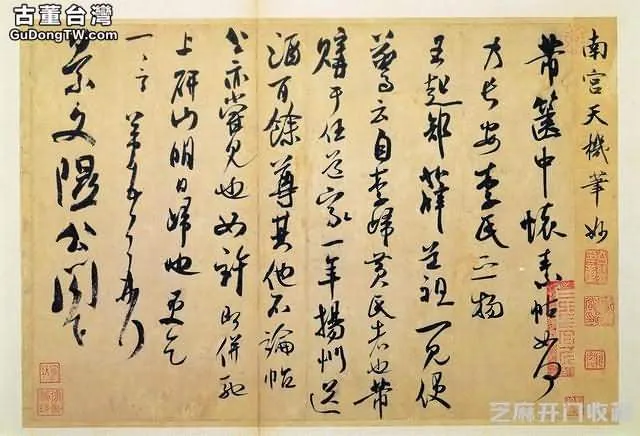 古董台灣
GuDongTW.com
南宮天機筆妙
芾篋中懷素帖如何
乃長安李氏之物
王起部薛道祖一見便
驚云自李歸黃氏者也芾
購于任道家一年揚州送
酒百餘尊其他不論帖
公亦嘗見也如許即併馳
上研山明日歸也更乞
一一言芾頓首再拜
景文隰公閣下
芝麻开门收藏